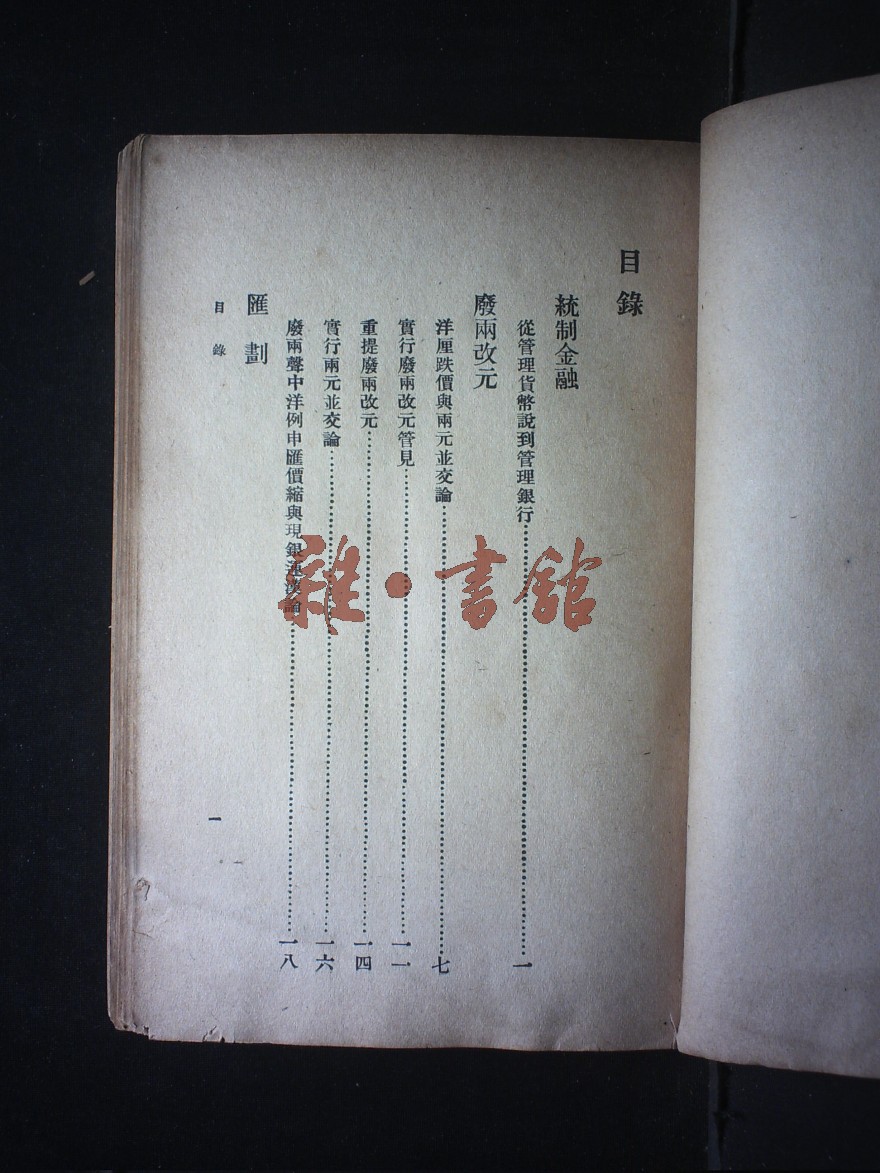 目錄
統制金融
從管理貨幣說到管理銀行……一
廢兩改元
洋厘跌價與兩元並交論……七
實行廢兩改元管見……一一
重提廢兩改元……一四
實行兩元並交論……一六
廢兩聲中洋例申匯價縮與現銀運漢論……一八
匯劃
目錄
一
雜·書館